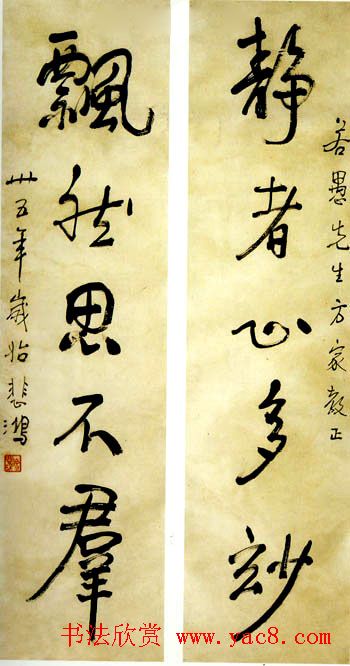 若愚先生方家教正
靜者心多玅
飄然思不羣
卅五年歲始悲鴻
书法欣赏 www.yac8.com